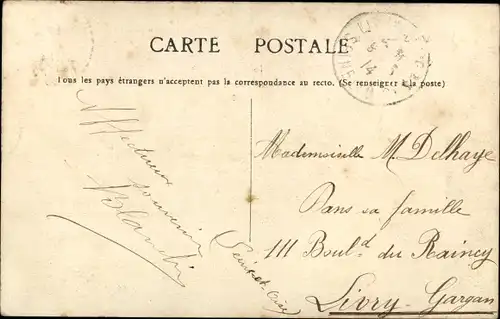 CARTE POSTALE
Tous les pays étrangers n'acceptent pas la correspondance au recto. (Se renseigner à la poste)
Affectueux
souvenir
Blanche
Mademoiselle M. Delhaye
Dans sa famille
111 Boul.d du Raincy
Livry-Gargan
(Seine-et-Oise)